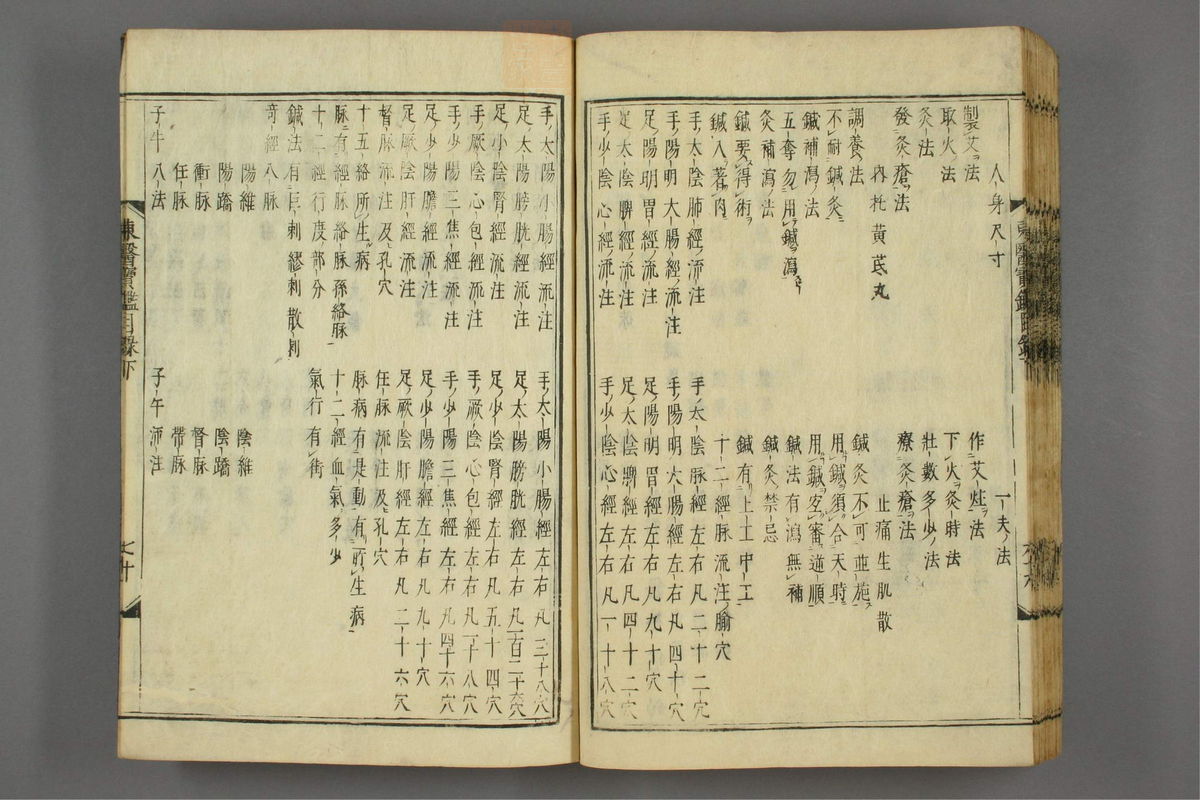 人身尺寸 一夫法
製艾法 作艾炷法
取火法 下火灸時法
灸法 壯數多少法
發灸瘡法 療灸瘡法
內托黃茋丸 止痛生肌散
調養法 鍼灸不可並施
不耐鍼灸 用鍼須合天時
鍼補瀉法 用鍼宜審逆順
五奪勿用鍼瀉 鍼法有瀉無補
灸補瀉法 鍼灸禁忌
鍼要得術 鍼有上工中工
鍼入著肉 十二經脉流注腧穴
手太陰肺經流注 手太陰脉經左右凡二十二穴
手陽明大腸經流注 手陽明大腸經左右凡四十穴
足陽明胃經流注 足陽明胃經左右凡九十穴
足太陰脾經流注 足太陰脾經左右凡四十二穴
手少陰心經流注 手少陰心經左右凡一十八穴
手太陽小腸經流注 手太陽小腸經左右凡三十八穴
足太陽膀胱經流注 足太陽膀胱經左右凡一百二十六穴
足小陰腎經流注 足少陰腎經左右凡五十四穴
手厥陰心包經流注 手厥陰心包經左右凡一十八穴
手少陽三焦經流注 手少陽三焦經左右凡四十六穴
足少陽膽經流注 足少陽膽經左右凡九十穴
足厥陰肝經流注 足厥陰肝經左右凡二十六穴
督脉流注及孔穴 任脉流注及孔穴
十五絡所生病 脉病有是動有所生病
脉有經脉絡脉孫絡脉 十二經血氣多少
十二經行度部分 氣行有街
鍼法有巨刺繆刺散刺
奇經八脉
陽維 陰維
陽蹻 陰蹻
衝脉 督脉
任脉 帶脉
子午八法 子午流注
東醫寶鑑目錄下 七十